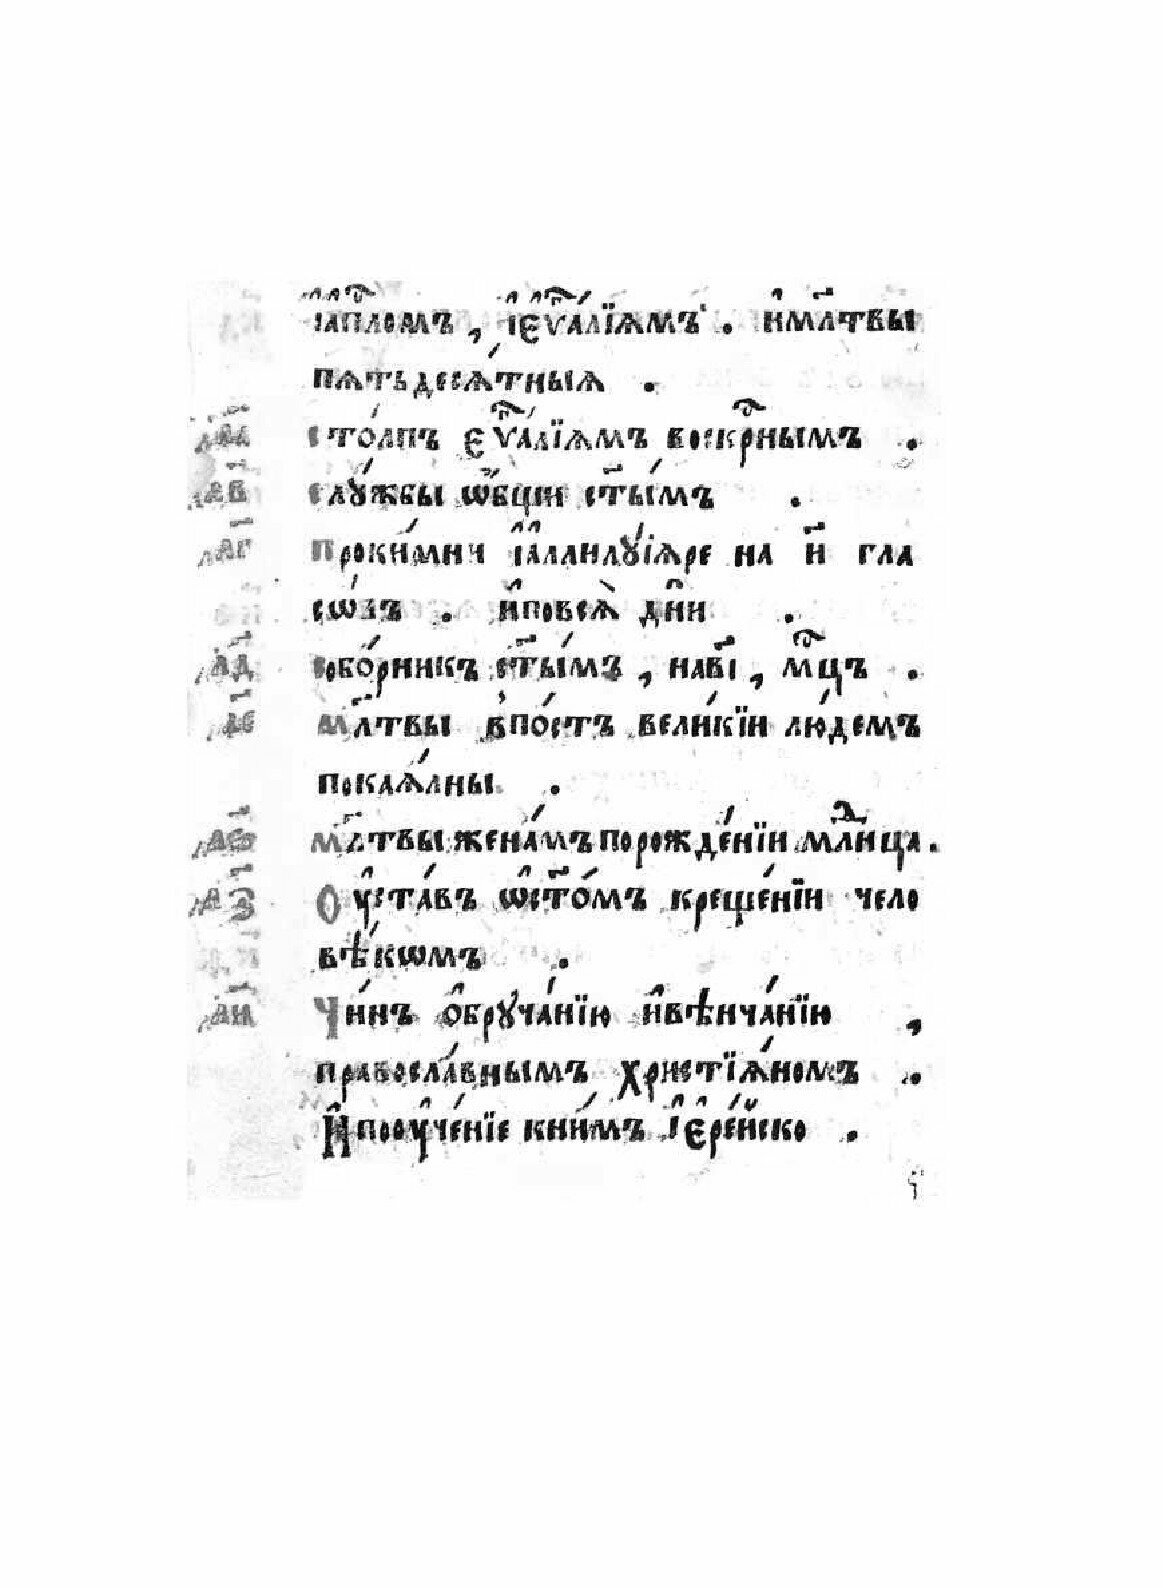 і҆а҆пⷭ҇ломъ, і҆є҆ѵⷢ҇а́лїѧмъ. и҆мл҃твы
пѧтьдесѧ́тныѧ .
л҃а сто́лпъ єѵⷢ҇а́лїѧмъ воскрⷭ҇нымъ .
л҃в слꙋ́жбы ѡ҆́бщїи ст҃ы́мъ .
л҃г проки́мни і҆а҆ллилꙋ́їѧре на и҃ гла
сѡ́въ . и҆повсѧ̀ дн҃и
л҃д собо́рникъ ст҃ы́мъ, нав҃і, мⷭ҇цъ .
л҃е мл҃твы в̾по́стъ вели́кїи лю́демъ
покаѧ́лны .
л҃ѕ мл҃твы жена́мъ порожде́нїи млⷣнца .
л҃з Оу҆ста́въ ѡ҆ст҃о́мъ креще́нїи чело
вѣ́кѡмъ .
л҃и Чи́нъ о҆брꙋча́нїю и҆вѣнча́нїю ,
правосла́внымъ христїѧ́номъ .
И҆пооу҆че́нїе книмъ і҆є҆ре́йско .